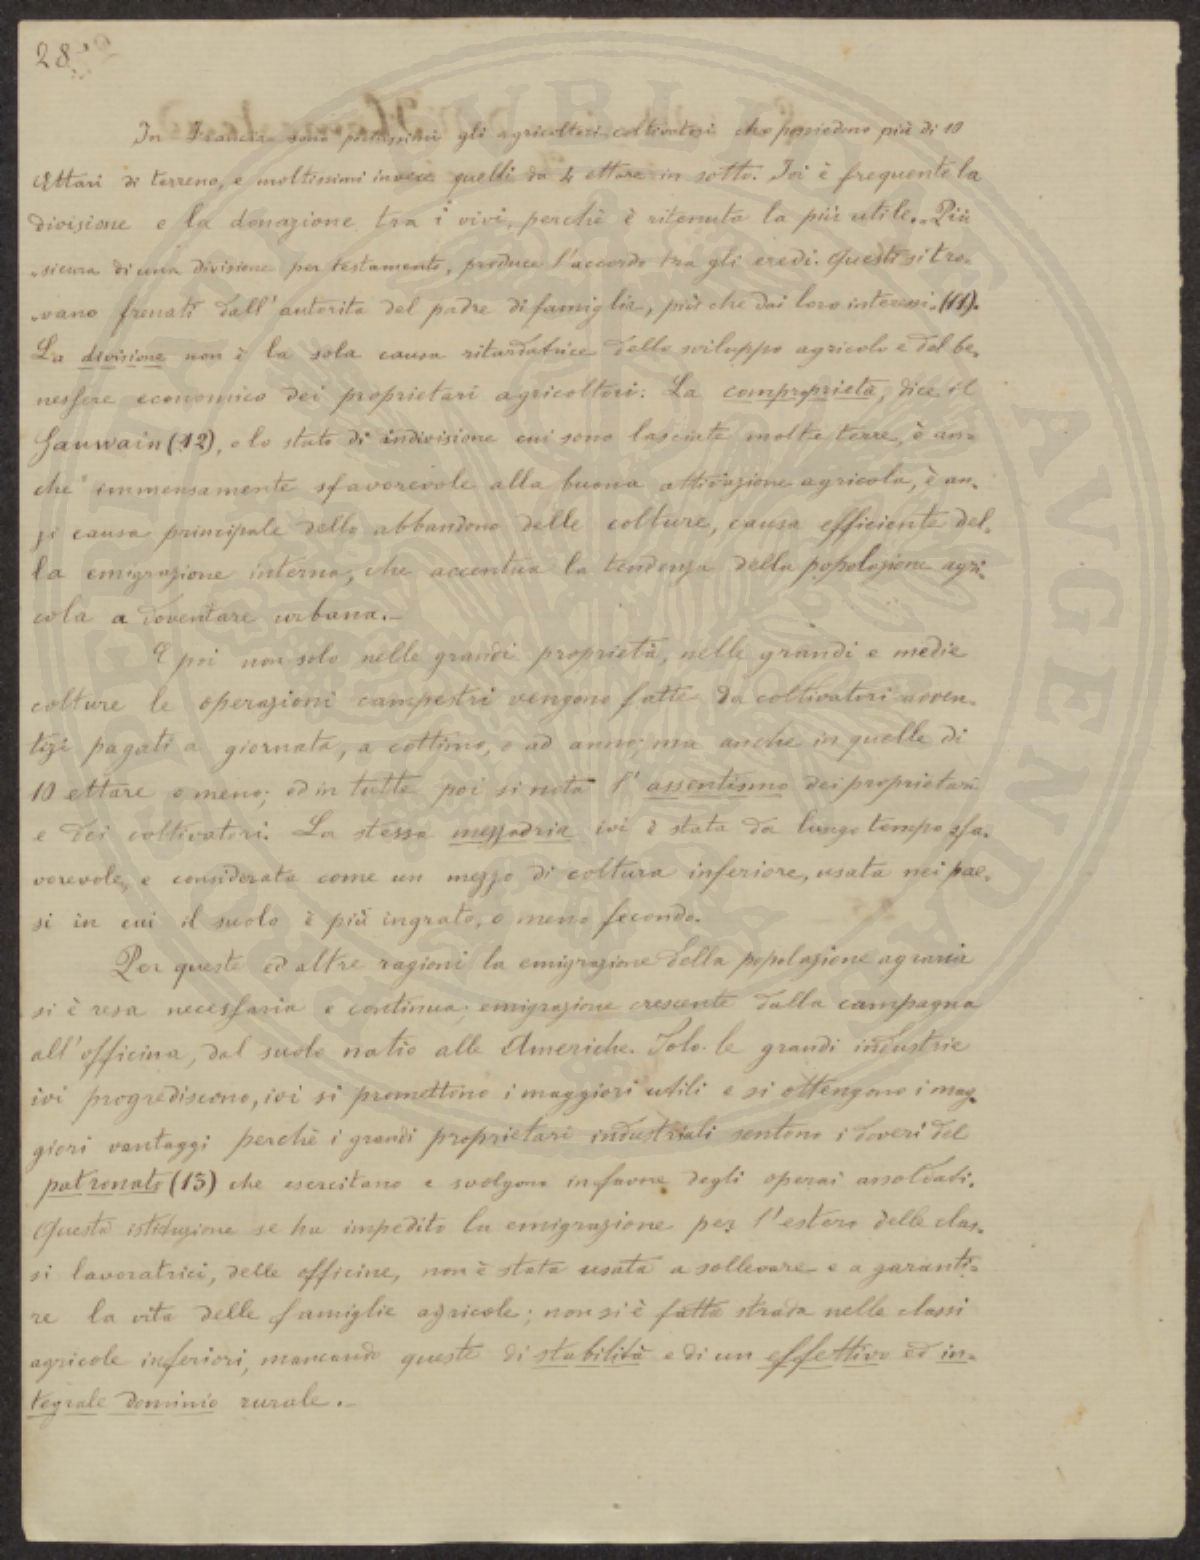 28
In Francia sono pochissimi gli agricoltori coltivatori che posseggono più di 10
Ettari di terreno, e moltissimi invece quelli da 4 ettare in sotto. Ivi è frequente la
divisione e la donazione tra i vivi, perchè è ritenuta la più utile. „Più
„sicura di una divisione per testamento, produce l'accordo tra gli eredi. Questi si tro-
„vano frenati dall'autorità del padre di famiglia, più che dai loro interessi„ (11).
La divisione non è la sola causa ritardatrice dello sviluppo agricolo e del be-
nessere economico dei proprietari agricoltori: La comproprietà, dice il
Gauwain (12), o lo stato di indivisione cui sono lasciate molte terre, è an-
che immensamente sfavorevole alla buona attivazione agricola, è an-
zi causa principale dello abbandono delle colture, causa efficiente del-
la emigrazione interna, che accentua la tendenza della popolazione agri-
cola a doventare urbana.—
E poi non solo nelle grandi proprietà, nelle grandi e medie
colture le operazioni campestri vengono fatte da coltivatori avven-
tizi pagati a giornata, a cottimo, o ad anno; ma anche in quelle di
10 ettare o meno; ed in tutte poi si nota l'assentismo dei proprietari
e dei coltivatori. La stessa mezzadria ivi è stata da lungo tempo sfa-
vorevole, e considerata come un mezzo di coltura inferiore, usata nei pae-
si in cui il suolo è più ingrato, o meno fecondo.
Per queste ed altre ragioni la emigrazione della popolazione agraria
si è resa necessaria e continua; emigrazione crescente dalla campagna
all'officina, dal suolo natio alle Americhe. Solo le grandi industrie
ivi progrediscono, ivi si promettono i maggiori utili e si ottengono i mag-
giori vantaggi perchè i grandi proprietari industriali sentono i doveri del
patronato (13) che esercitano e svolgono in favore degli operai assoldati.
Questa istituzione se ha impedito la emigrazione per l'estero delle clas-
si lavoratrici, delle officine, non è stata usata a sollevare e a garanti-
re la vita delle famiglie agricole; non si è fatta strada nelle classi
agricole inferiori, mancando queste di stabilità e di un effettivo ed in-
tegrale dominio rurale.—